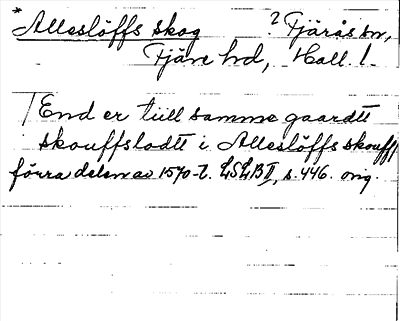 * Alleslöffs skog ? Fjärås sn,
Fjäre hd, Hall. l.
/ End er tiill samme gaardtt
skouffslodtt i Alleslöffs skouff/
förra delen av 1570-t. LSLB II, s. 446. orig.